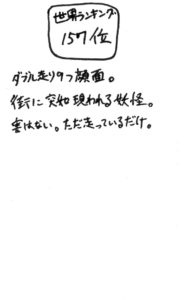 世界ランキング
157位
ダブル走り9つ顔面。
街に突如現われる妖怪。
害はない。ただ走っているだけ。